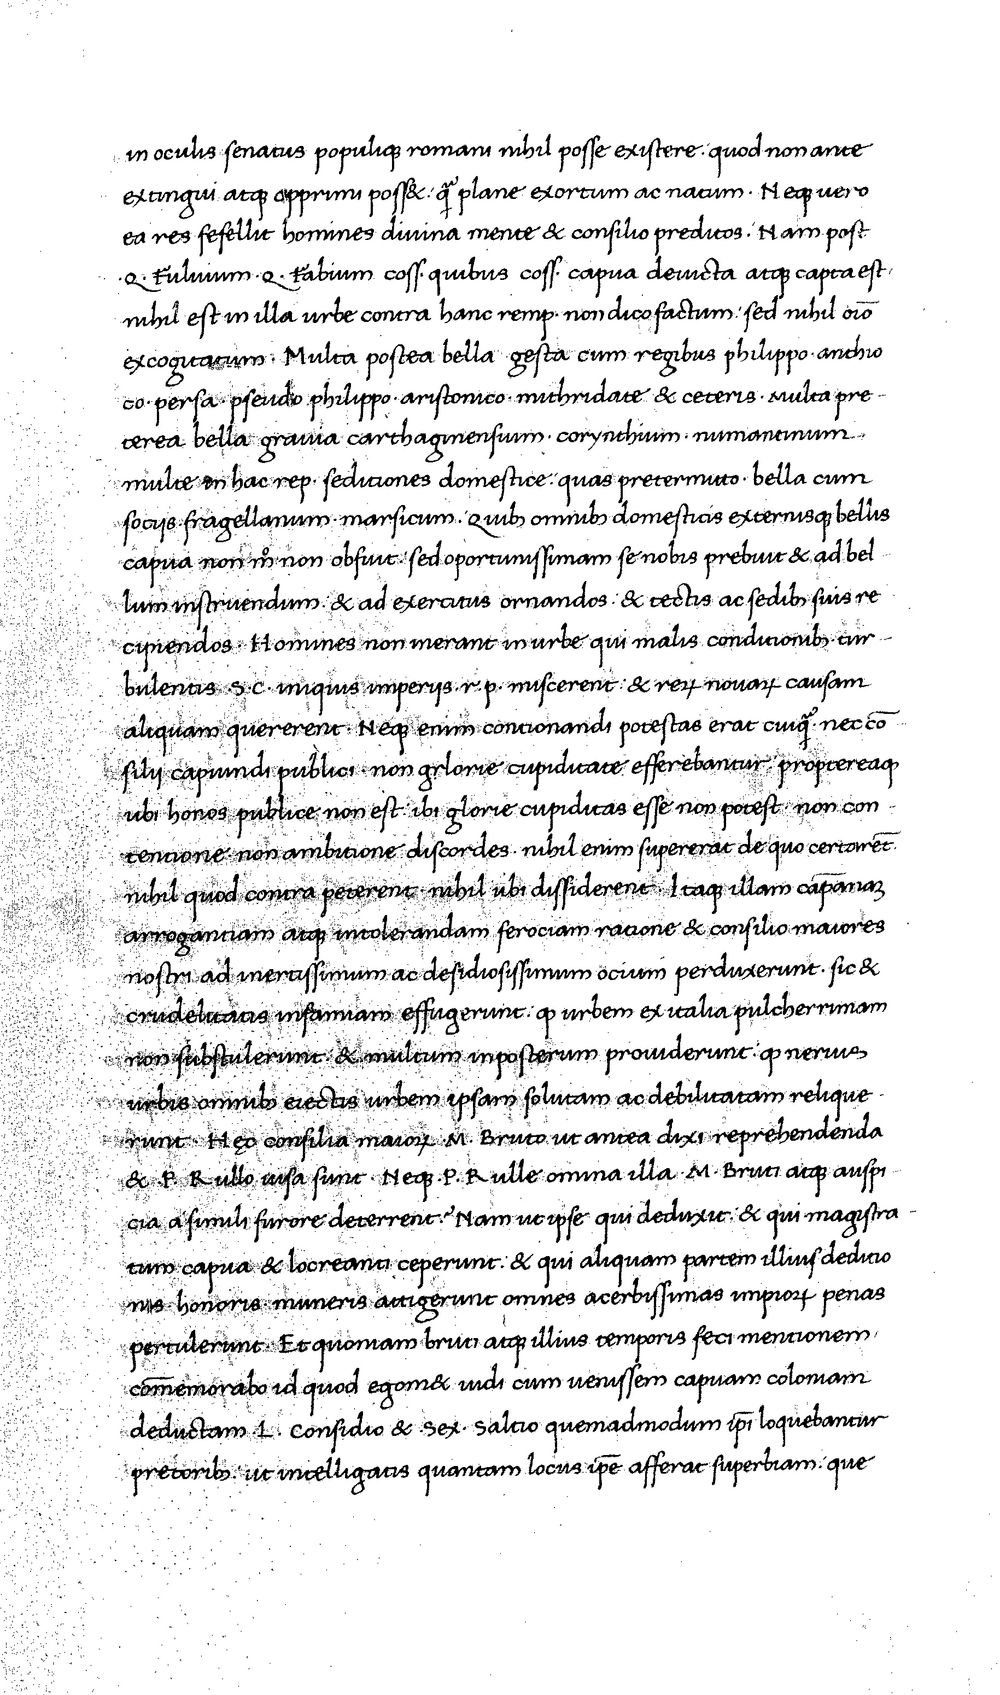 in oculis senatus populiqꝫ romani nihil posse existere. quod non ante
extingui atqꝫ opprimi poss&. qͣ̃ plane exortum ac natum. Neqꝫ uero
ea res fefellit homines diuina mente & consilio preditos. Nam post
.Q. Fuluium .Q. Fabium coss. quibus coss. capua deuicta atqꝫ capta est.
nihil est in illa urbe contra hanc remp. non dico factum: sed nihil oīo
excogitatum. Multa postea bella gesta cum regibus philippo. anthio
co. persa. pseudo philippo. aristonico. mithridate & ceteris. Multa pre-
terea bella grauia carthaginensium. corynthium. numantinum.
multe in hac rep. seditiones domestice. quas pretermitto. bella cum
socijs. fragellanum. marsicum. Quibꝫ omnibꝫ domesticis externisqꝫ bellis
capua non mͦ non obfuit: sed oportunissimam se nobis prebuit & ad bel
lum instruendum. & ad exercitus ornandos. & tectis ac sedibꝫ suis re
cipiendos. Homines non inerant in urbe qui malis conditionibꝫ tur-
bulentis S.C. iniquis imperijs .r.p. miscerent: & reꝝ nouaꝝ causam
aliquam quererent. Neqꝫ enim contionandi potestas erat cuiqͣ̃. nec cō-
silij capiundi publici. non grlorie cupiditate efferebantur: proptereaqꝫ
ubi honos publice non est. ibi glorie cupiditas esse non potest. non con-
tentione non ambitione discordes. nihil enim supererat de quo certarēt.
nihil quod contra peterent. nihil ubi dissiderent. Itaqꝫ illam cāpanaꝫ
arrogantiam atqꝫ intolerandam ferociam ratione & consilio maiores
nostri ad inertissimum ac desidiosissimum ocium perduxerunt. sic &
crudelitatis infamiam effugerunt. ꝙ urbem ex italia pulcherrimam
non substulerunt. & multum inposterum prouiderunt. ꝙ neruis
urbis omnibꝫ eiectis urbem ipsam solutam ac debilitatam relique-
runt. Hęc consilia maioꝝ M. Bruto ut antea dixi reprehendenda
& .P. Rullo uisa sunt. Neqꝫ .P. Rulle omina illa .M. Bruti atqꝫ auspi-
cia a simili furore deterrent? Nam ut ipse qui deduxit. & qui magistra-
tum capua & locreanti ceperunt. & qui aliquam partem illius deditio
nis honoris muneris attigerunt omnes acerbissimas impioꝝ penas
pertulerunt. Et quoniam bruti atqꝫ illius temporis feci mentionem.
com̄emorabo id quod egom& uidi cum uenissem capuam coloniam
deductam .L. Considio & .Sex. Saltio quemadmodum ip̄i loquebantur
pretoribꝫ. ut intelligatis quantam locus ip̄e afferat superbiam. que